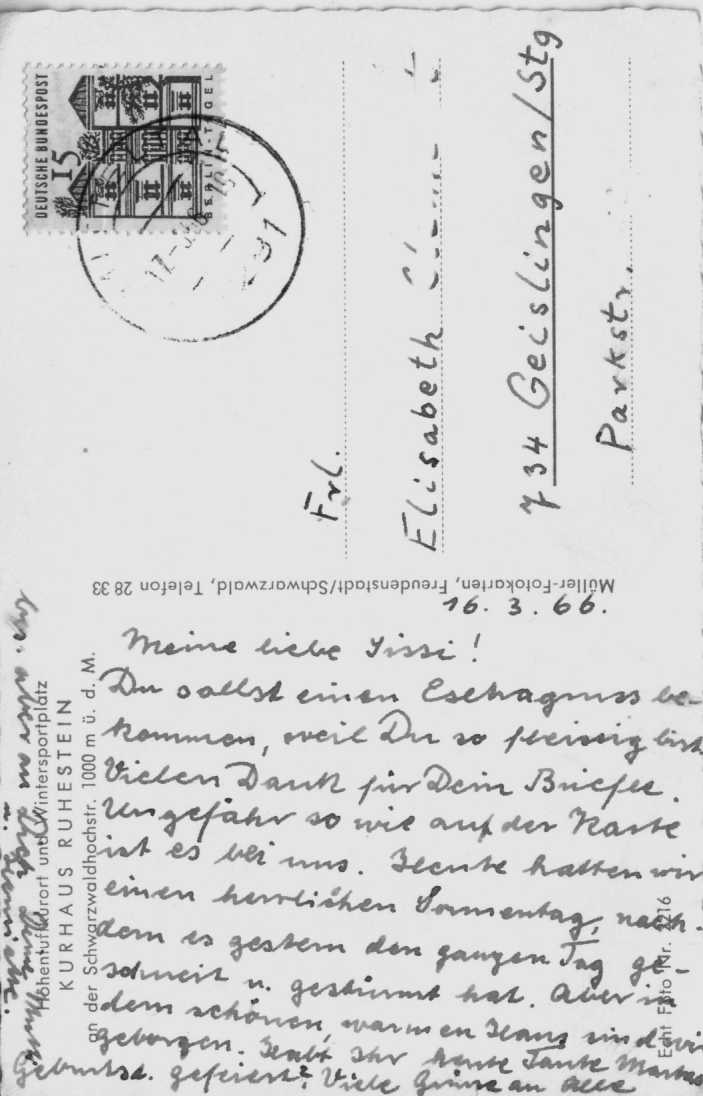 DEUTSCHE BUNDESPOST
15
BERLIN-TEGEL
Frl.
Elisabeth
734 Geislingen/Stg
Parkstr.
Müller-Fotokarten, Freudenstadt/Schwarzwald, Telefon 28 33
Höhenluftkurort und Wintersportplatz
KURHAUS RUHESTEIN
an der Schwarzwaldhochstr. 1000 m ü. d. M.
Echt Foto Nr. 1216
16. 3. 66.
Meine liebe Sissi!
Du sollst einen Extragruss be-
kommen, weil Du so fleissig bist.
Vielen Dank für Dein Briefle.
Ungefähr so wie auf der Karte
ist es bei uns. Heute hatten wir
einen herrlichen Sonnentag, nach-
dem es gestern den ganzen Tag ge-
schneit u. gestürmt hat. Aber in
dem schönen, warmen Haus sind wir
geborgen. Habt Ihr heute Tante Marthas
Geburtst. gefeiert? Viele Grüsse an Alle
bes. aber an Dich Deine